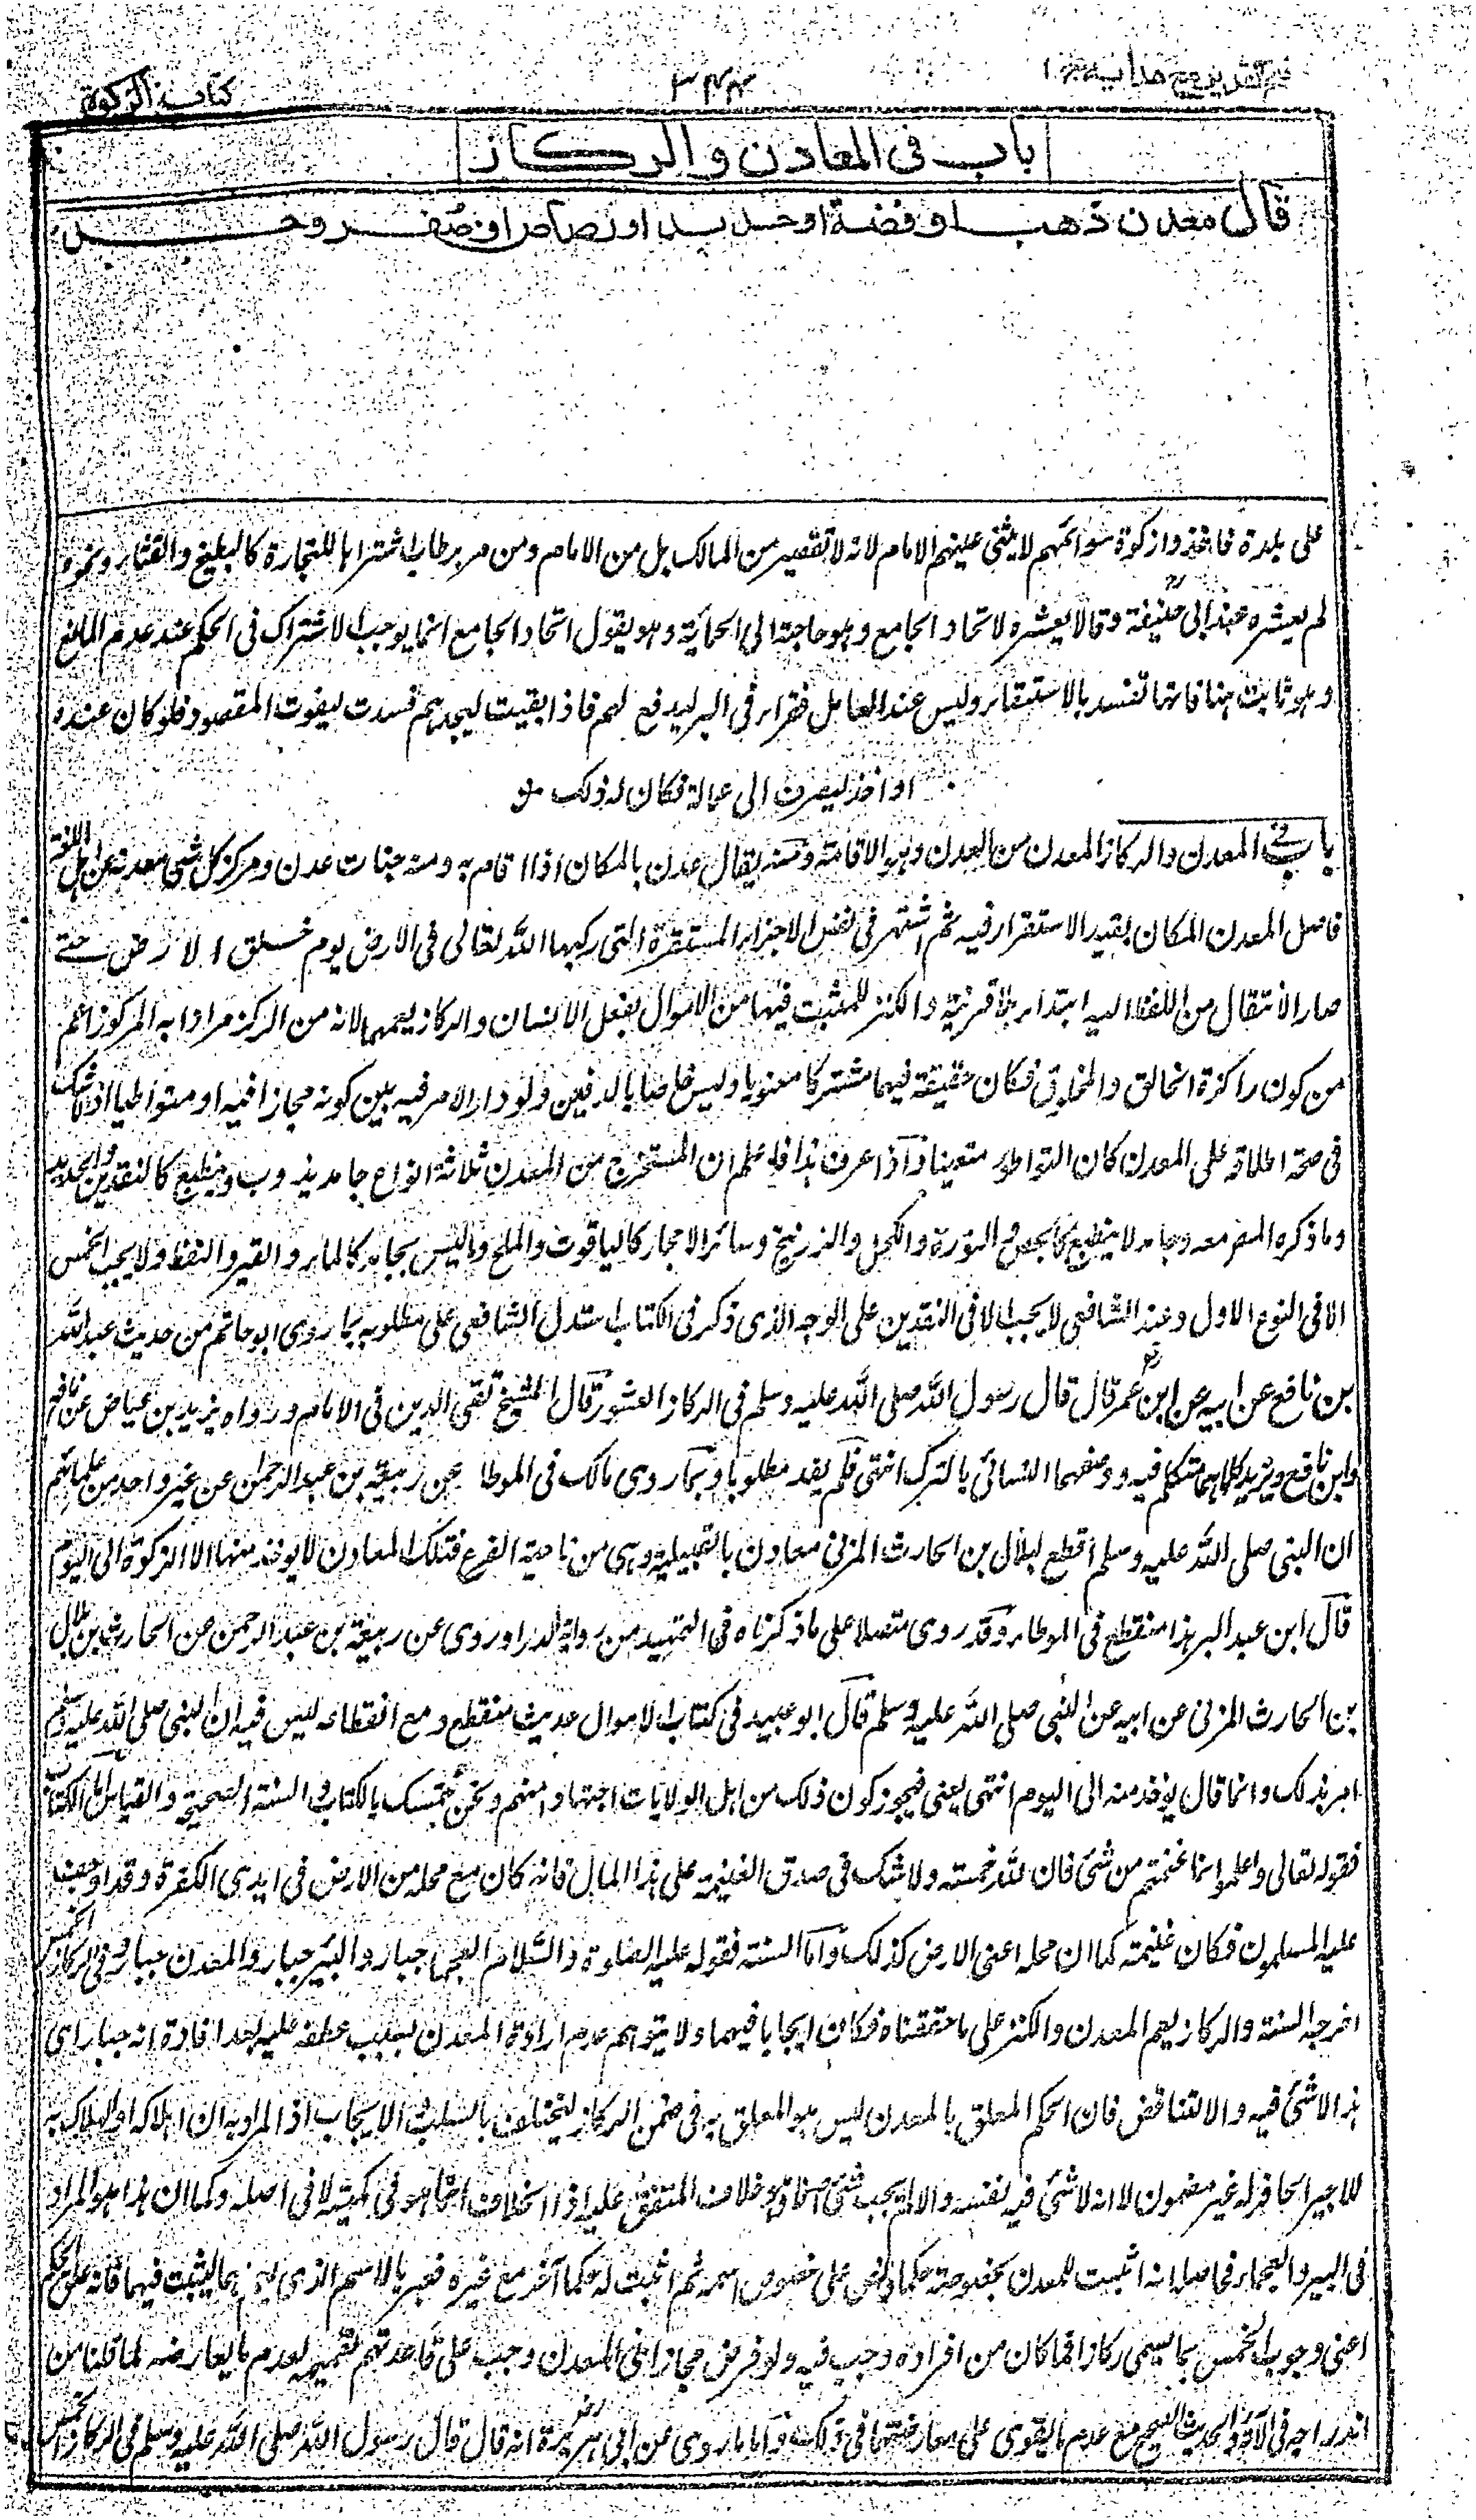 فتح القدير مع هدايه ج ١
٣٤٣
كتاب الزكوة
باب فى المعادن والركاز
قال معدن ذهب او فضة او حديد او رصاص او صفر وجد
على بلدة فاخذوا زكوة سوائمهم لا يثنى عليهم الامام لانه لا تقصير من المالك بل من الامام ومن مر برطاب اشتراها للتجارة كالبطيخ والقثاء ونحوه
لم يعشره عند ابى حنيفة رح وقالا يعشره لاتحاد الجامع وهو حاجته الى الحماية وهو يقول اتحاد الجامع انما يوجب الاشتراك فى الحكم عند عدم المانع
وهو ثابت هنا فانها تفسد بالاستبقاء وليس عند العامل فقراء فى البر ليدفع لهم فاذا بقيت ليجدهم فسدت ليفوت المقصود فلو كان عنده
او اخذ ليصرف الى عمالة فكان له ذلك
باب فى المعدن والركاز المعدن من العدن وهو الاقامة ومنه يقال عدن بالمكان اذا اقام به ومنه جنات عدن ومركز كل شئ معدنه عن اهل اللغة
فاصل المعدن المكان بقيد الاستقرار فيه ثم اشتهر فى نفس الاجزاء المستقرة التى ركبها الله تعالى فى الارض يوم خلق الارض حتى
صار الانتقال من اللفظ اليه ابتداء بلا قرينة والكنز للمثبت فيها من الاموال بفعل الانسان والركاز يعمهما لانه من الركز مرادا به المركوز اعم
من كون راكزة الخالق والمخلوق فكان حقيقة فيهما مشتركا معنويا وليس خاصا بالدفين ولو دار الامر فيه بين كونه مجازا فيه او متواطيا اذ لا شك
فى صحة اطلاقه على المعدن كان التواطؤ متعينا واذا عرف هذا فاعلم ان المستخرج من المعدن ثلاثة انواع جامد يذوب وينطبع كالنقدين والحديد
وما ذكره المص معه وجامد لا ينطبع كالجص والنورة والكحل والزرنيخ وسائر الاحجار كالياقوت والملح وما ليس بجامد كالماء والقير والنفط ولا يجب الخمس
الا فى النوع الاول وعند الشافعى لا يجب الا فى النقدين على الوجه الذى ذكر فى الكتاب استدل الشافعى على مطلوبه بما روى ابو حاتم من حديث عبد الله
بن نافع عن ابيه عن ابن عمر رض قال قال رسول الله صلى الله عليه وسلم فى الركاز العشور قال الشيخ تقى الدين فى الامام ورواه يزيد بن عياض عن نافع
وابن نافع ويزيد كلاهما متكلم فيه ووصفهما النسائى بالترك انتهى فلم يفد مطلوبا وبما روى مالك فى الموطا عن ربيعة بن عبد الرحمن عن غير واحد من علمائهم
ان النبى صلى الله عليه وسلم اقطع لبلال بن الحارث المزنى معادن بالقبيلية وهى من ناحية الفرع فتلك المعادن لا يوخذ منها الا الزكوة الى اليوم
قال ابن عبد البر هذا منقطع فى الموطا وقد روى متصلا على ما ذكرناه فى التمهيد من رواية الدراوردى عن ربيعة بن عبد الرحمن عن الحارث بن بلال
بن الحارث المزنى عن ابيه عن النبى صلى الله عليه وسلم قال ابو عبيد فى كتاب الاموال حديث منقطع ومع انقطاعه ليس فيه ان النبى صلى الله عليه وسلم
امر بذلك وانما قال يوخذ منه الى اليوم انتهى يعنى فيجوز كون ذلك من اهل الولايات اجتهادا منهم ونحن نتمسك بالكتاب والسنة الصحيحة والقياس اما الكتاب
فقوله تعالى واعلموا انما غنمتم من شئ فان لله خمسه ولا شك فى صدق الغنيمة على هذا المال فانه كان مع محله من الارض فى ايدى الكفرة وقد اوجف
عليه المسلمون فكان غنيمة كما ان محله اعنى الارض كذلك واما السنة فقوله عليه الصلوة والسلام العجماء جبار والبئر جبار والمعدن جبار وفى الركاز الخمس
اخرجه الستة والركاز يعم المعدن والكنز على ما حققناه فكان ايجابا فيهما ولا يتوهم عدم ارادة المعدن بسبب عطفه عليه بعد افادة انه جبار اى
هدر لا شئ فيه والا لتناقض فان الحكم المعلق بالمعدن ليس هو المعلق به فى ضمن الركاز ليختلف بالسلب والايجاب اذ المراد به ان اهلاكه او الهلاك به
للاجير الحافر له غير مضمون لا انه لا شئ فيه نفسه والا لم يجب شئ اصلا وهو خلاف المتفق عليه اذ الخلاف انما هو فى كميته لا فى اصله وكما ان هذا هو المراد
فى البير والعجماء فحاصله انه اثبت للمعدن بخصوصه حكما فنص على خصوص اسمه ثم اثبت له حكما آخر مع غيره فعبر بالاسم الذى يعمهما ليثبت فيهما فانه علق الحكم
اعنى وجوب الخمس بما يسمى ركازا فما كان من افراده وجب فيه ولو فرض مجازا فى المعدن وجب على قاعدتهم تعميمه لعدم ما يعارضه لما قلنا من
اندراجه فى الآية والحديث الصحيح مع عدم ما يقوى على معارضتهما فى ذلك واما ما روى عن ابى هريرة رض انه قال قال رسول الله صلى الله عليه وسلم فى الركاز الخمس